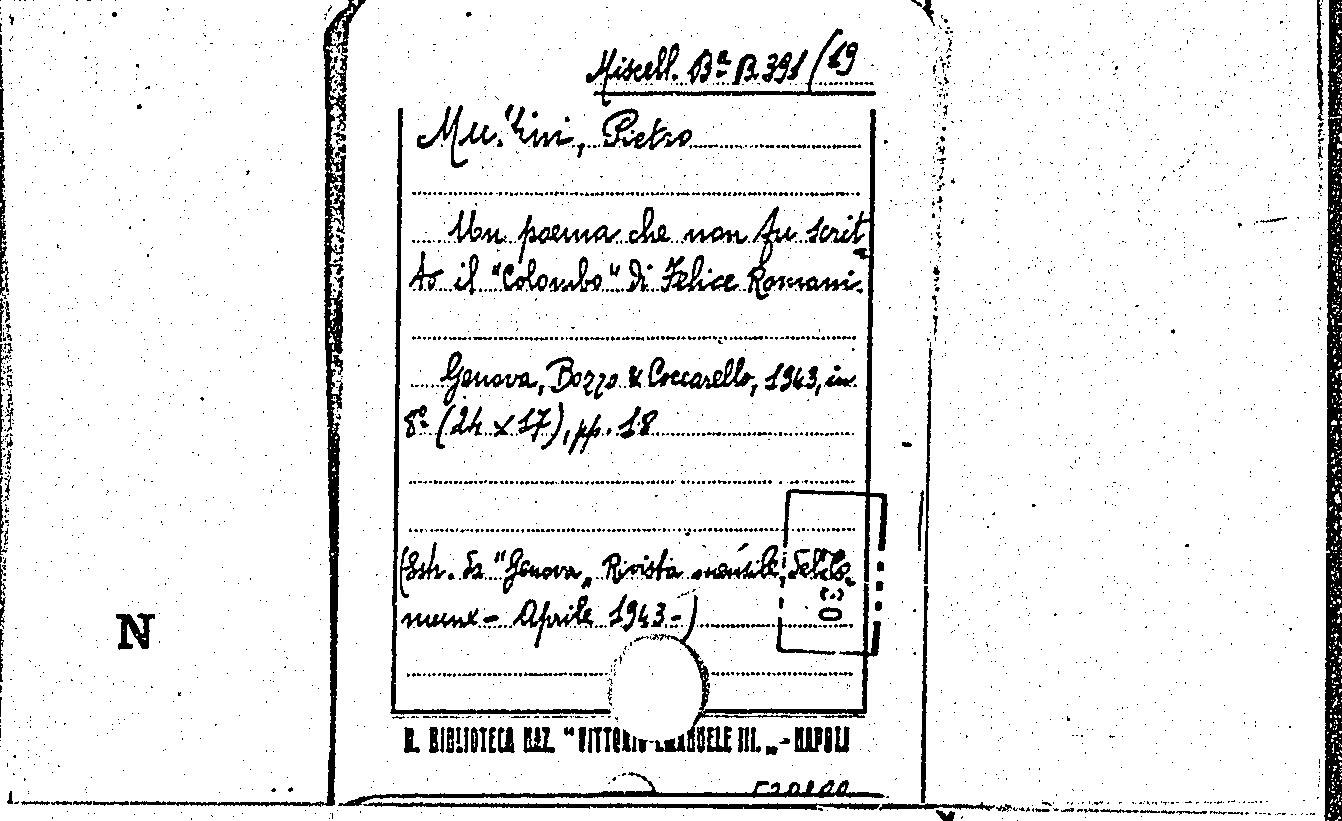 Miscell. Bª B.391/19
Pietro
Un poema che non fu scrit
to il "Colombo" di Felice Romani.
Genova, Bozzo & Coccarello, 1943, in
8º (24 x 17), pp. 18
(Estr. da "Genova" Rivista mensile,
- Aprile 1943-)
30
N
R. BIBLIOTECA NAZ. "VITTORIO EMANUELE III." - NAPOLI